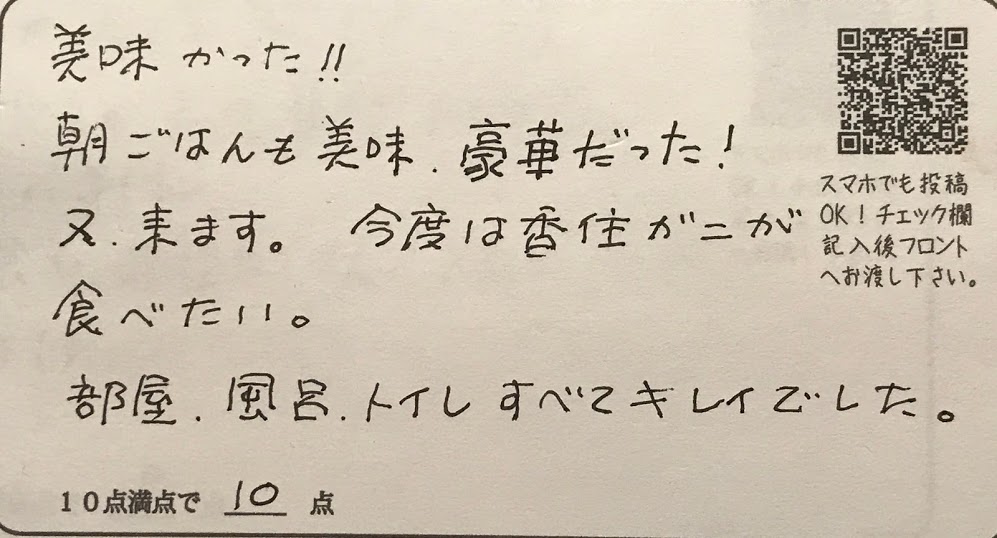 美味かった!!
朝ごはんも美味、豪華だった!
又、来ます。 今度は香住ガニが
食べたい。
部屋、風呂、トイレすべてキレイでした。
10点満点で 10 点
スマホでも投稿
OK!チェック欄
記入後フロント
へお渡し下さい。